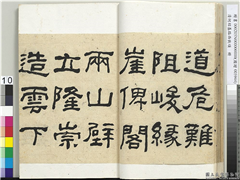 道危難
阻峻緣
崖俾閣
兩山壁
立隆崇
造雲下
10